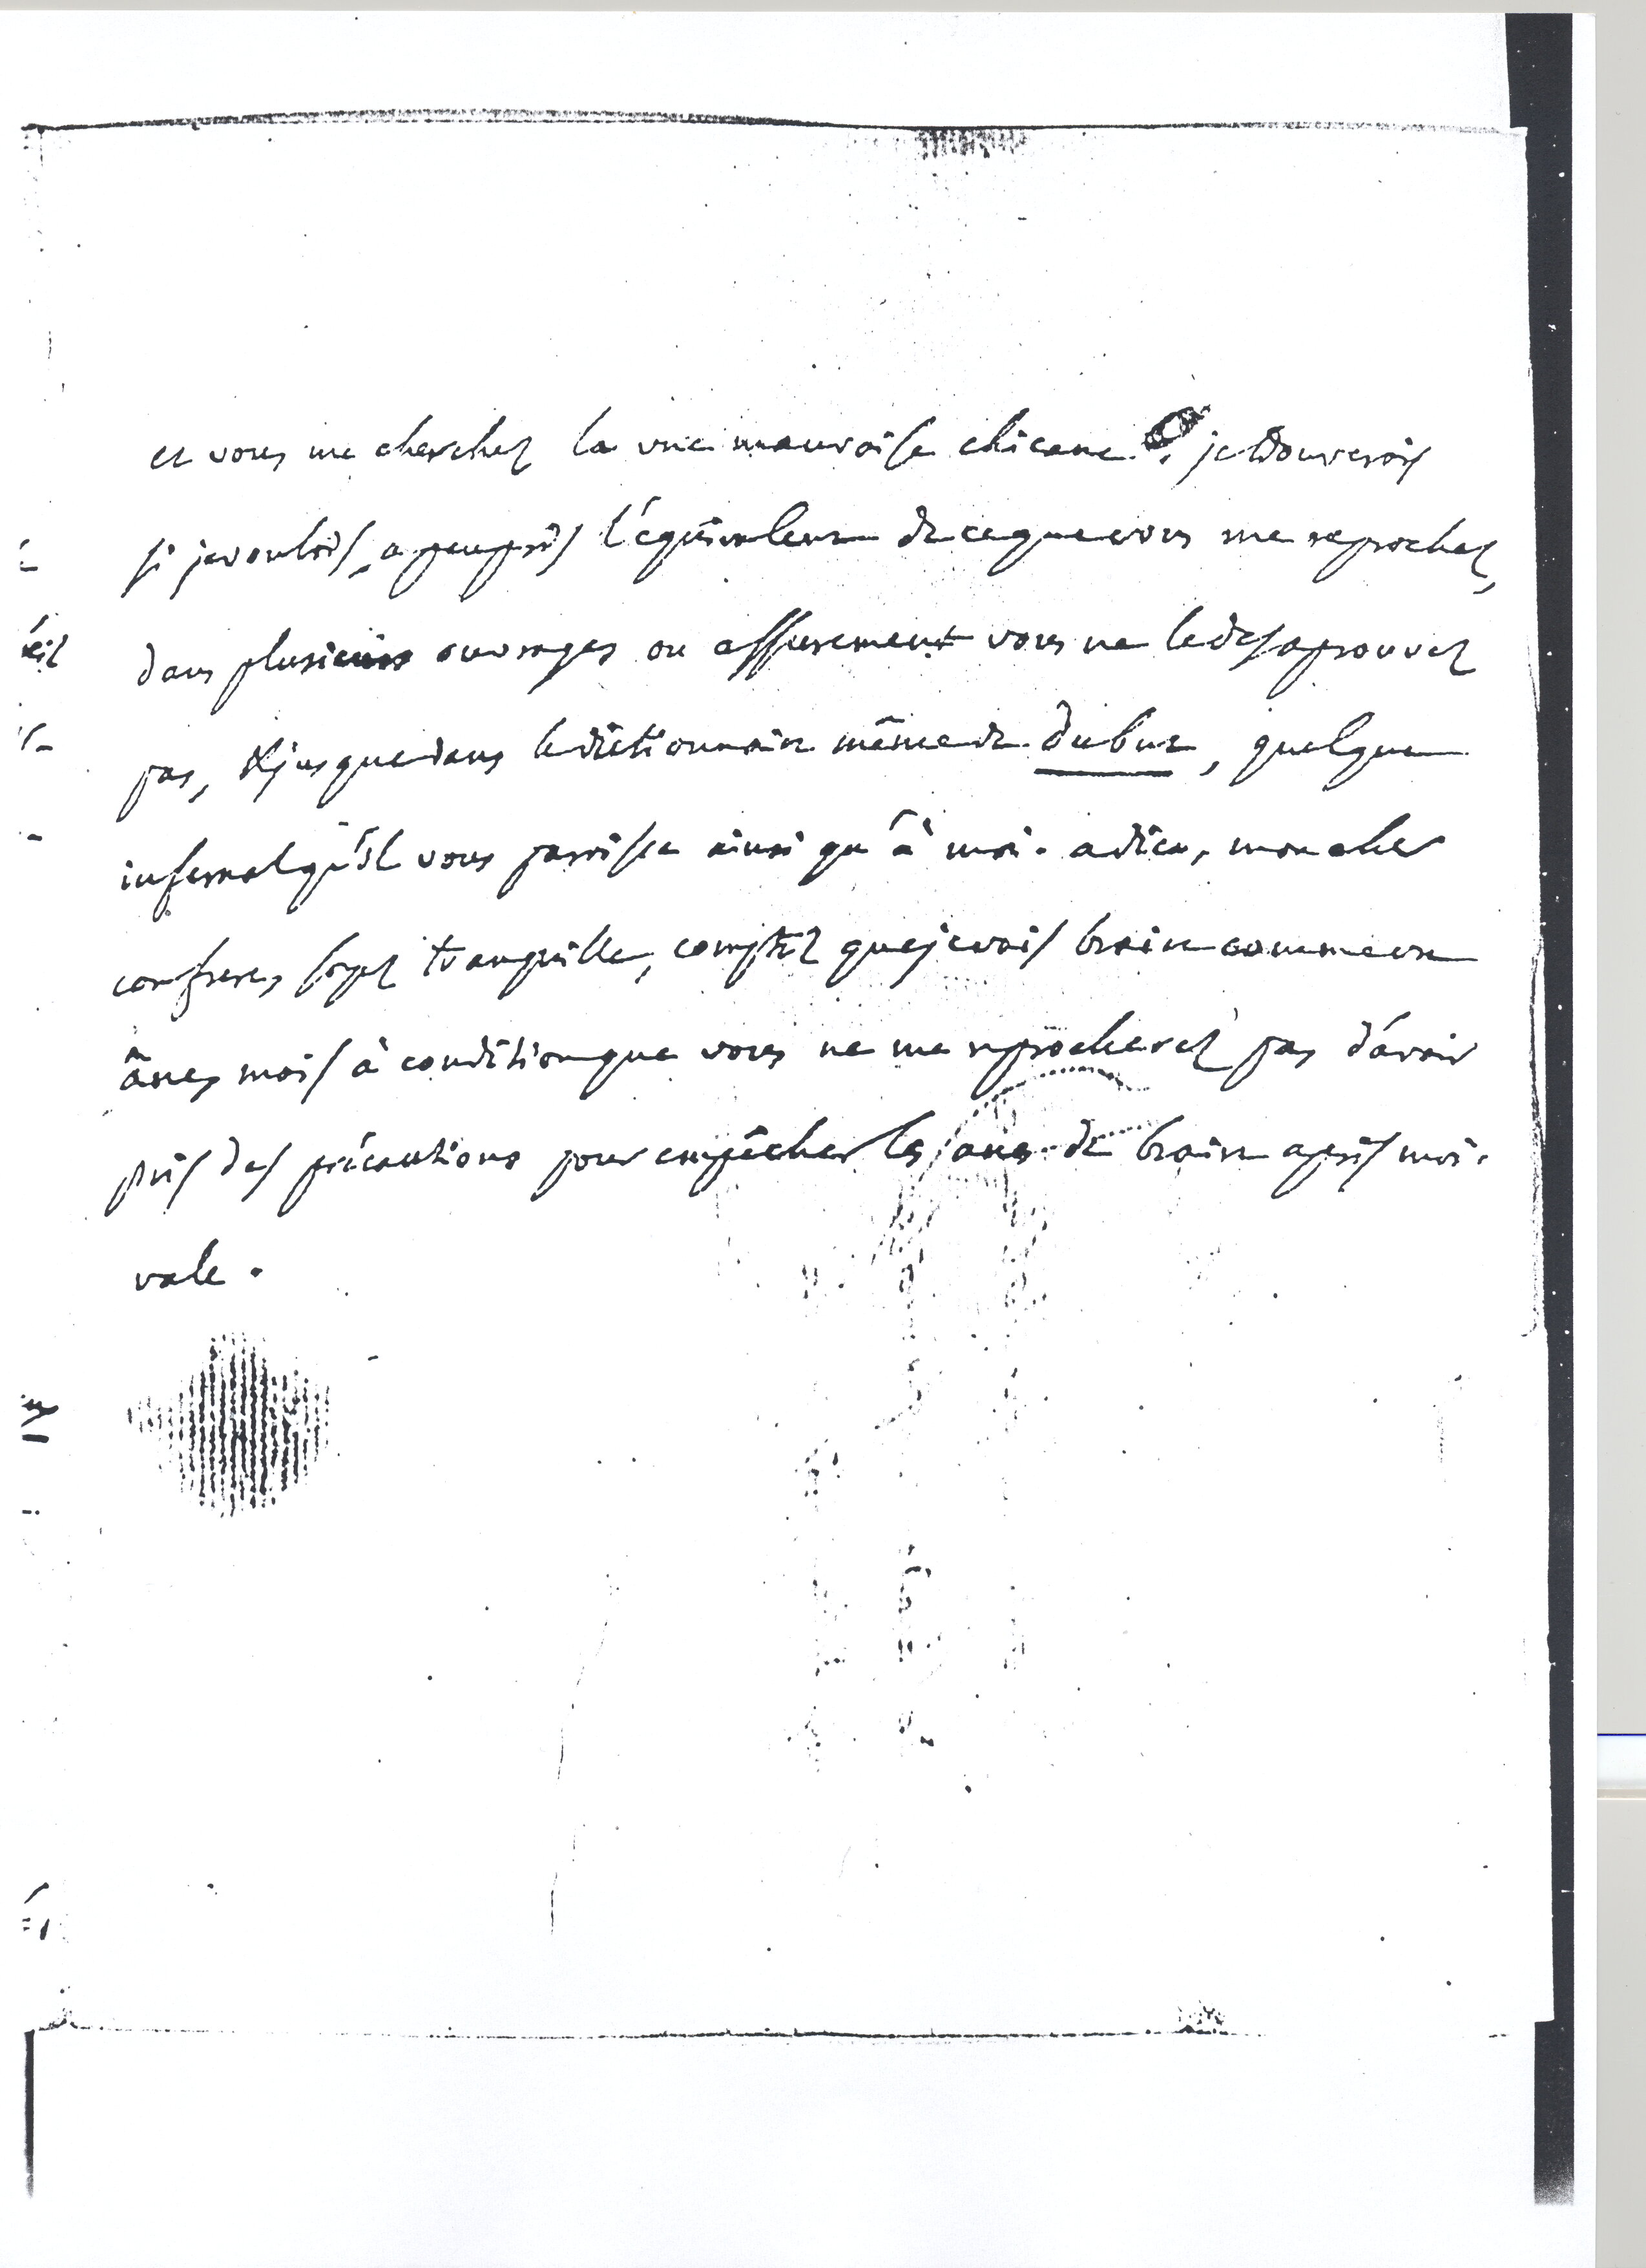 et vous me cherchez la une mauvaise chicane. je trouverois
si je voulois, a peu près l'équivalent de ce que vous me reprochez,
dans plusieurs ouvrages ou assurement vous ne le desaprouvez
pas, & jusque dans le dictionnaire même de dubut, quelque
infernal qu'il vous paroisse ainsi qu'à moi. adieu, mon cher
confrere, soyez tranquille, comptez que je vais braire comme un
âne, mais à condition que vous ne me reprocherez pas d'avoir
pris des précautions pour empêcher les anes de braire après moi.
vale.